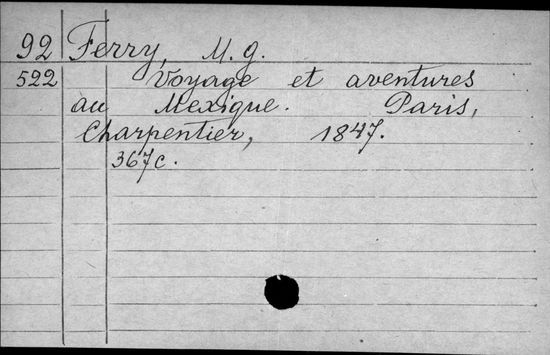 92 Ferry, M. G.
522 Voyage et aventures
au Mexique. Paris,
Charpentier, 1847.
367c.